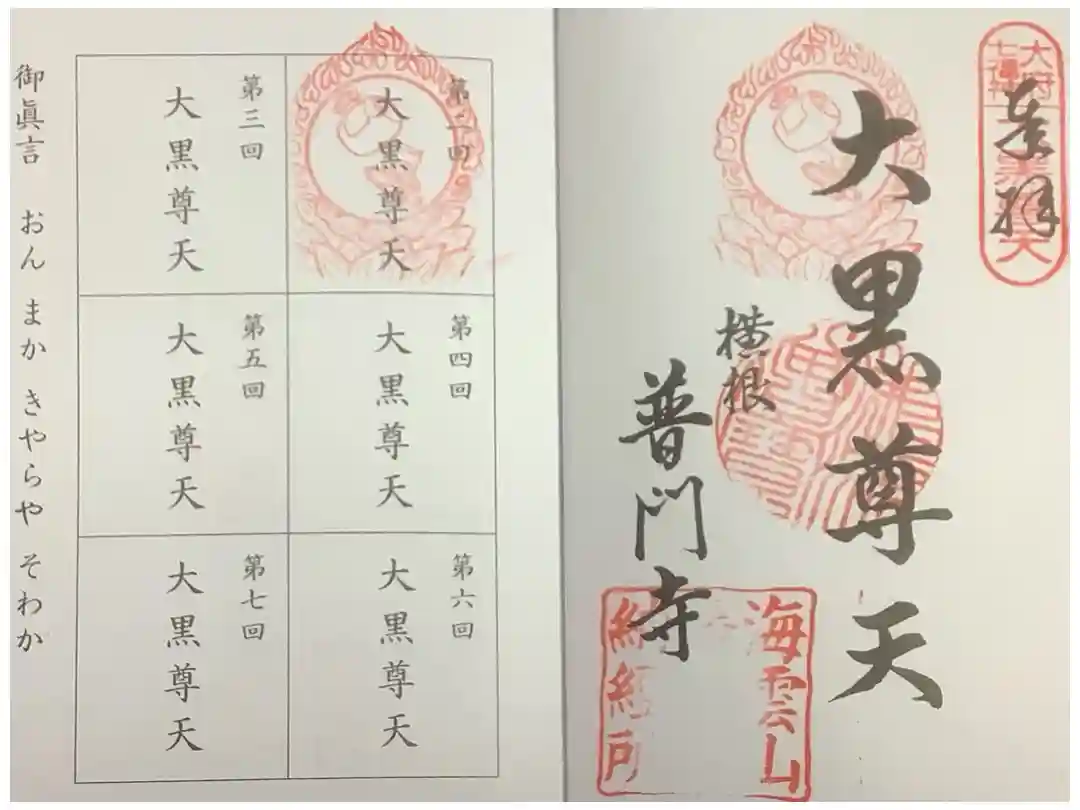 奉拝
大府
七福神
大黒尊天
大黒尊天
横根
普門寺
海雲山
納経所
第二回
大黒尊天
第三回
大黒尊天
第四回
大黒尊天
第五回
大黒尊天
第六回
大黒尊天
第七回
大黒尊天
御眞言 おん まか きゃらや そわか